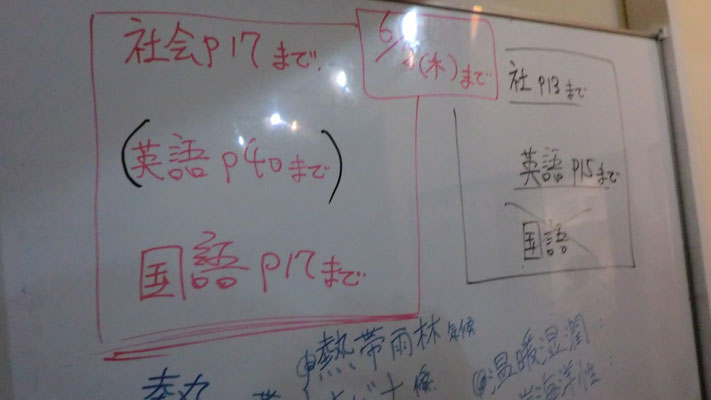 社会p17まで
(英語p40まで)
国語p17まで
(木)まで
社p13まで
英語p15まで
国語
熱帯雨林気候
温暖湿潤
海洋性